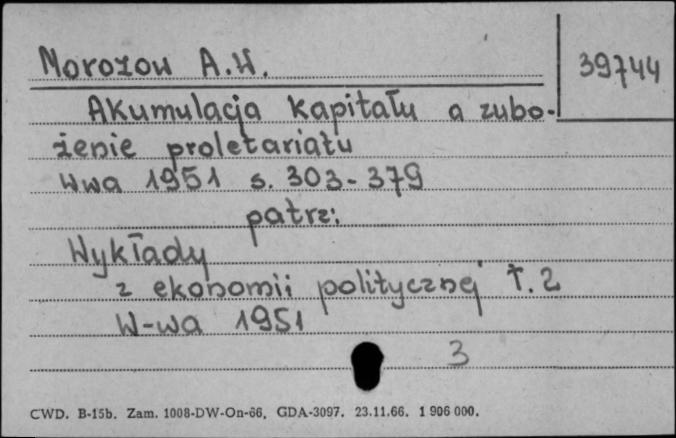 Morozow A.W.
39744
Akumulacja kapitału a zubo-
żenie proletariatu
Wwa 1951 s. 303-379
patrz:
Wykłady
z ekonomii politycznej T. 2
W-wa 1951
3
CWD. B-15b. Zam. 1008-DW-On-66. GDA-3097. 23.11.66. 1 906 000.